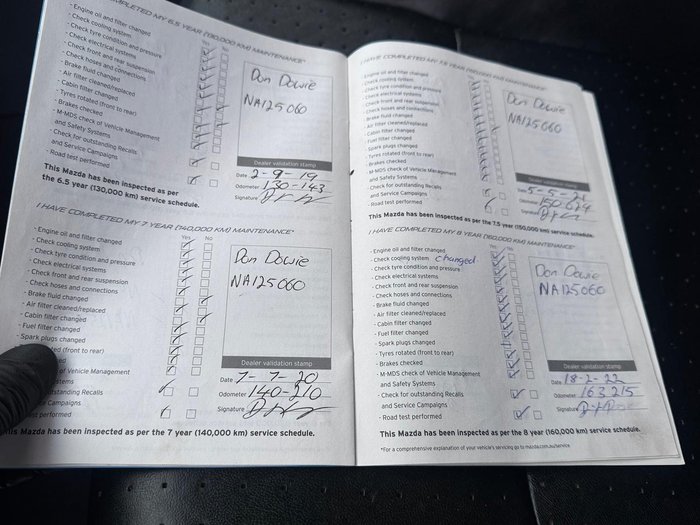 COMPLETED MY 6.5 YEAR (130,000 KM) MAINTENANCE*
Yes No
- Engine oil and filter changed
- Check cooling system
- Check tyre condition and pressure
- Check electrical systems
- Check front and rear suspension
- Check hoses and connections
- Brake fluid changed
- Air filter cleaned/replaced
- Cabin filter changed
- Tyres rotated (front to rear)
- Brakes checked
- M-MDS check of Vehicle Management
and Safety Systems
- Check for outstanding Recalls
and Service Campaigns
- Road test performed
Don Dowie
NA125060
Dealer validation stamp
Date 2-9-19
Odometer 130-143
Signature
This Mazda has been inspected as per
the 6.5 year (130,000 km) service schedule.
I HAVE COMPLETED MY 7 YEAR (140,000 KM) MAINTENANCE*
Yes No
- Engine oil and filter changed
- Check cooling system
- Check tyre condition and pressure
- Check electrical systems
- Check front and rear suspension
- Check hoses and connections
- Brake fluid changed
- Air filter cleaned/replaced
- Cabin filter changed
- Fuel filter changed
- Spark plugs changed
(front to rear)
of Vehicle Management
Recalls
Campaigns
performed
Don Dowie
NA125060
Dealer validation stamp
Date 7-7-20
Odometer 140-210
Signature
This Mazda has been inspected as per the 7 year (140,000 km) service schedule.
I HAVE COMPLETED MY 7.5 YEAR (150,000 KM) MAINTENANCE*
Yes No
- Engine oil and filter changed
- Check cooling system
- Check tyre condition and pressure
- Check electrical systems
- Check front and rear suspension
- Check hoses and connections
- Brake fluid changed
- Air filter cleaned/replaced
- Cabin filter changed
- Fuel filter changed
- Spark plugs changed
- Tyres rotated (front to rear)
- Brakes checked
- M-MDS check of Vehicle Management
and Safety Systems
- Check for outstanding Recalls
and Service Campaigns
- Road test performed
Don Dowie
NA125060
Dealer validation stamp
Date 5-5-21
Odometer 150-624
Signature
This Mazda has been inspected as per the 7.5 year (150,000 km) service schedule.
I HAVE COMPLETED MY 8 YEAR (160,000 KM) MAINTENANCE*
Yes No
- Engine oil and filter changed
- Check cooling system changed
- Check tyre condition and pressure
- Check electrical systems
- Check front and rear suspension
- Check hoses and connections
- Brake fluid changed
- Air filter cleaned/replaced
- Cabin filter changed
- Fuel filter changed
- Spark plugs changed
- Tyres rotated (front to rear)
- Brakes checked
- M-MDS check of Vehicle Management
and Safety Systems
- Check for outstanding Recalls
and Service Campaigns
- Road test performed
Don Dowie
NA125060
Dealer validation stamp
Date 18-2-22
Odometer 163215
Signature
This Mazda has been inspected as per the 8 year (160,000 km) service schedule.
*For a comprehensive explanation of your vehicle's servicing go to mazda.com.au/service